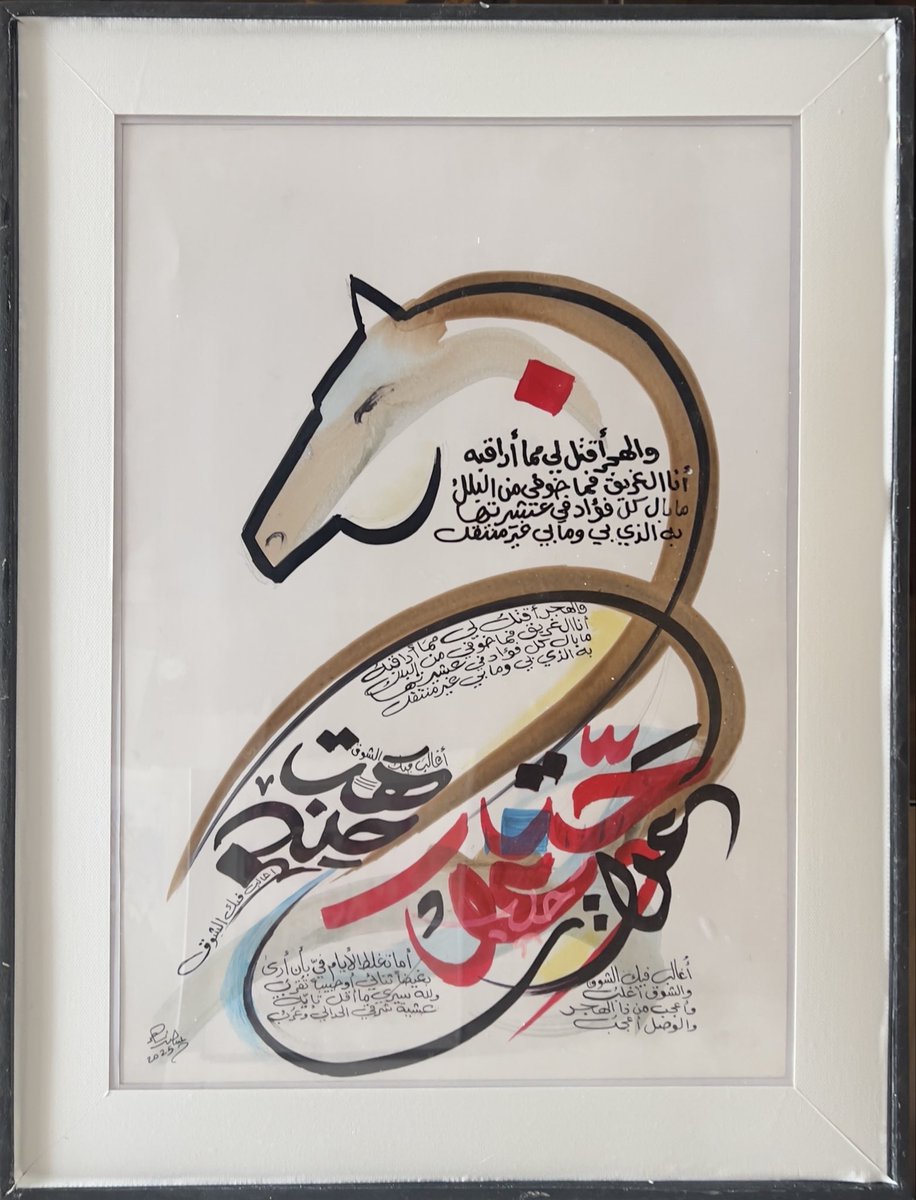 والهجر أقتل لي مما أراقبه
أنا الغريق فما خوفي من البلل
ما بال كل فؤاد في عشيرتها
به الذي بي وما بي غير منتقل
والهجر أقتل لي مما أراقبه
أنا الغريق فما خوفي من البلل
ما بال كل فؤاد في عشيرتها
به الذي بي وما بي غير منتقل
أغالب فيك الشوق
أغالب فيك الشوق
أما تغلط الأيام في بأن أرى
بغيضا تنائي أو حبيبا تقرب
ولله سيري ما أقل تأية
عشية شرقي الحدالى وغرب
أغالب فيك الشوق
والشوق أغلب
وأعجب من ذا الهجر
والوصل أعجب
2025